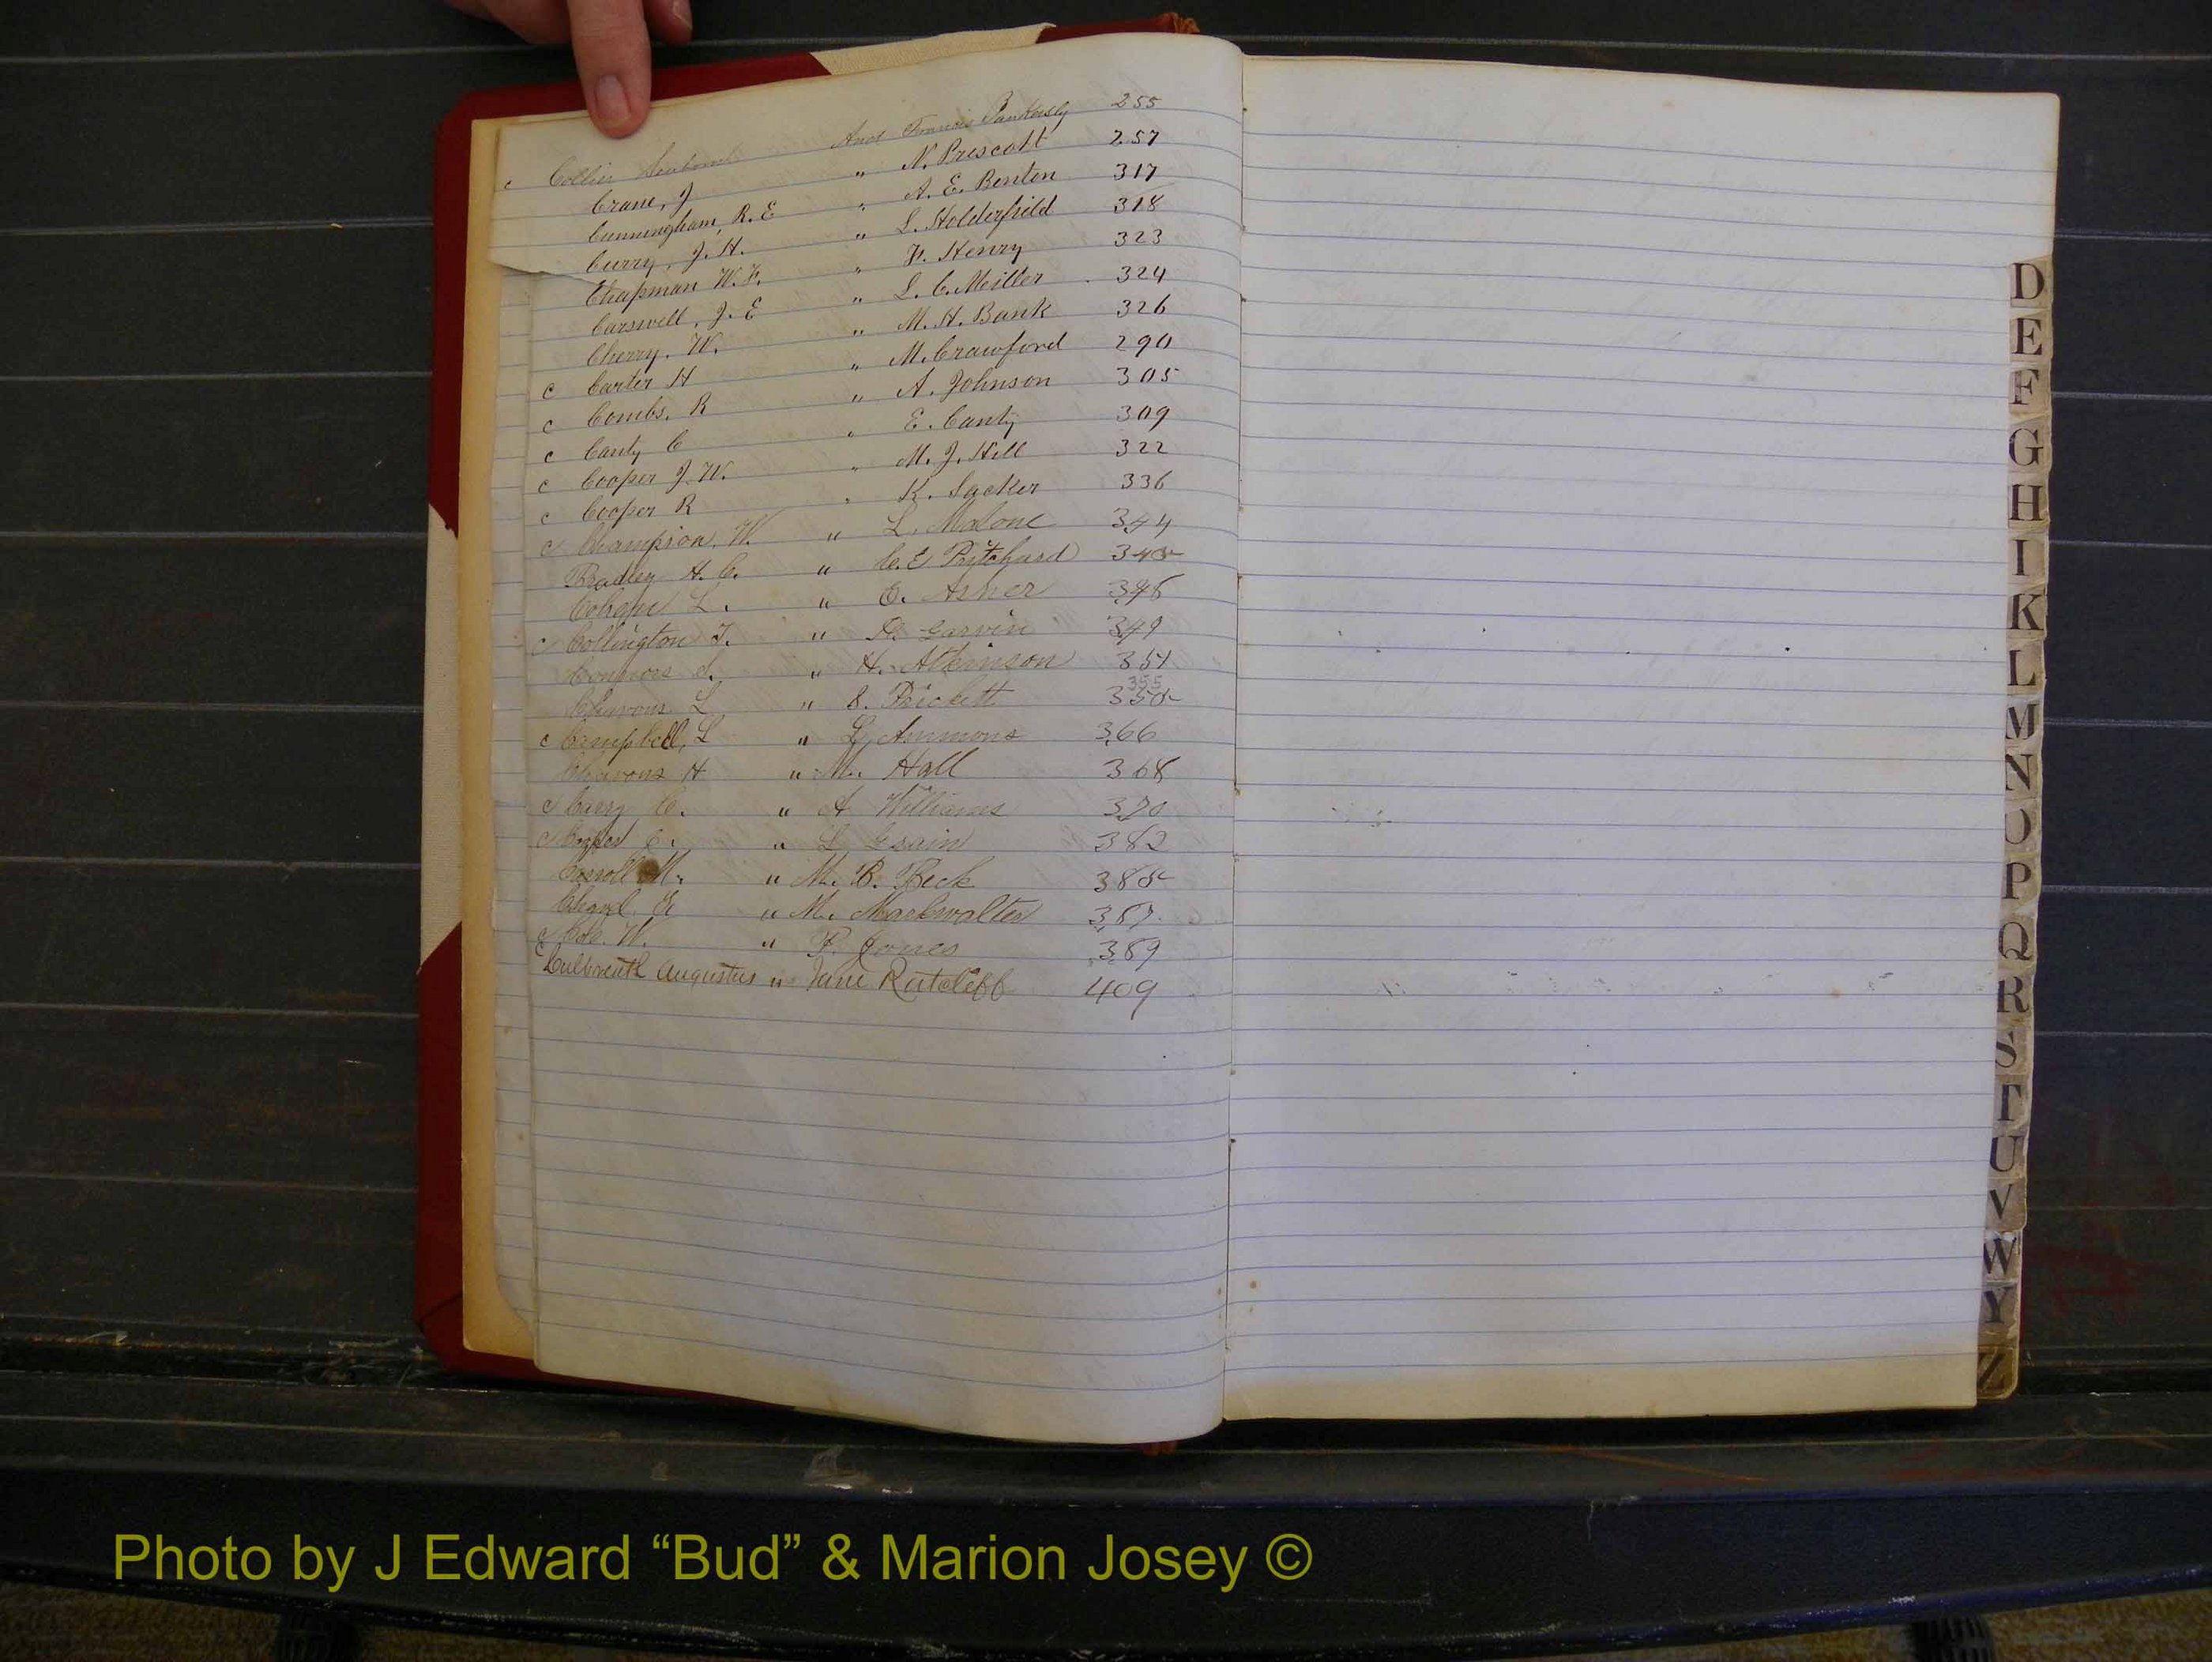 c Collier And Francis 255
Crane, J " N. Prescott 257
Cunningham, R. E " A. E. Benton 317
Curry, J. H. " L. Holderfield 318
Chapman W. F. " F. Henry 323
Carswell, J. E " L. C. Meiller 324
Cherry. W. " M. H. Bank 326
c Carter H " M. Crawford 290
c Combs. R " A. Johnson 305
c Canty C " E. Canty 309
c Cooper J. W. " M. J. Hill 322
c Cooper R " K. Sacker 336
c Champion, W. " L. Malone 344
Bradley H. C. " C. E Pritchard 345
L. " O. Asher 346
c Collington J. " Garvin 349
Connors S. " H. Atkinson 351
355
Chavous L " S. Prickett 350
c Campbell, L " L. Ammons 366
Chavous H " M. Hall 368
c C. " A Williams 370
c C. " L Crain 382
Carroll M. " M. B. Beck 385
" M. Markwalter 387
c Cole. W. " P. Jones 389
c Culbreath Augustus " Jane Ratcliff 409
D
E
F
G
H
I
K
L
M
N
O
P
Q
R
S
T
U
V
W
Y
Z
Photo by J Edward “Bud” & Marion Josey ©